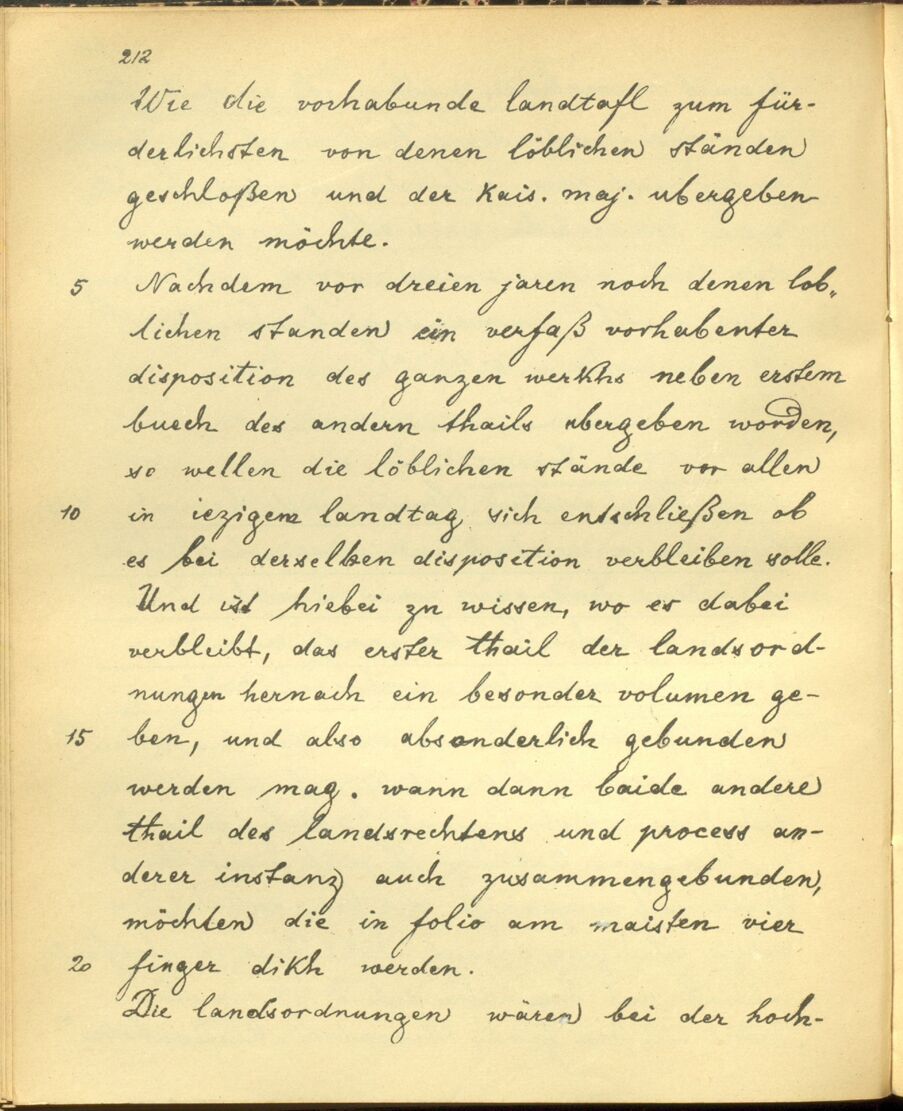 212
Wie die vorhabunde landtafl zum für-
derlichsten von denen löblichen ständen
geschloßen und der kais. maj. ubergeben
werden möchte.
5 Nachdem vor dreien jaren noch denen lob„
lichen standen ein verfaß vorhabenter
disposition des ganzen werkhs neben erstem
buech des andern thails ubergeben worden,
so wellen die löblichen stände vor allen
10 in iezigem landtag sich entschließen ob
es bei derselben disposition verbleiben solle.
Und ist hiebei zu wissen, wo es dabei
verbleibt, das erster thail der landsord-
nungen hernach ein besonder volumen ge-
15 ben, und also absonderlich gebunden
werden mag. wann dann baide andere
thail des landsrechtens und process an-
derer instanz auch zusammengebunden,
möchten die in folio am maisten vier
20 finger dikh werden.
Die landsordnungen wären bei der hoch-